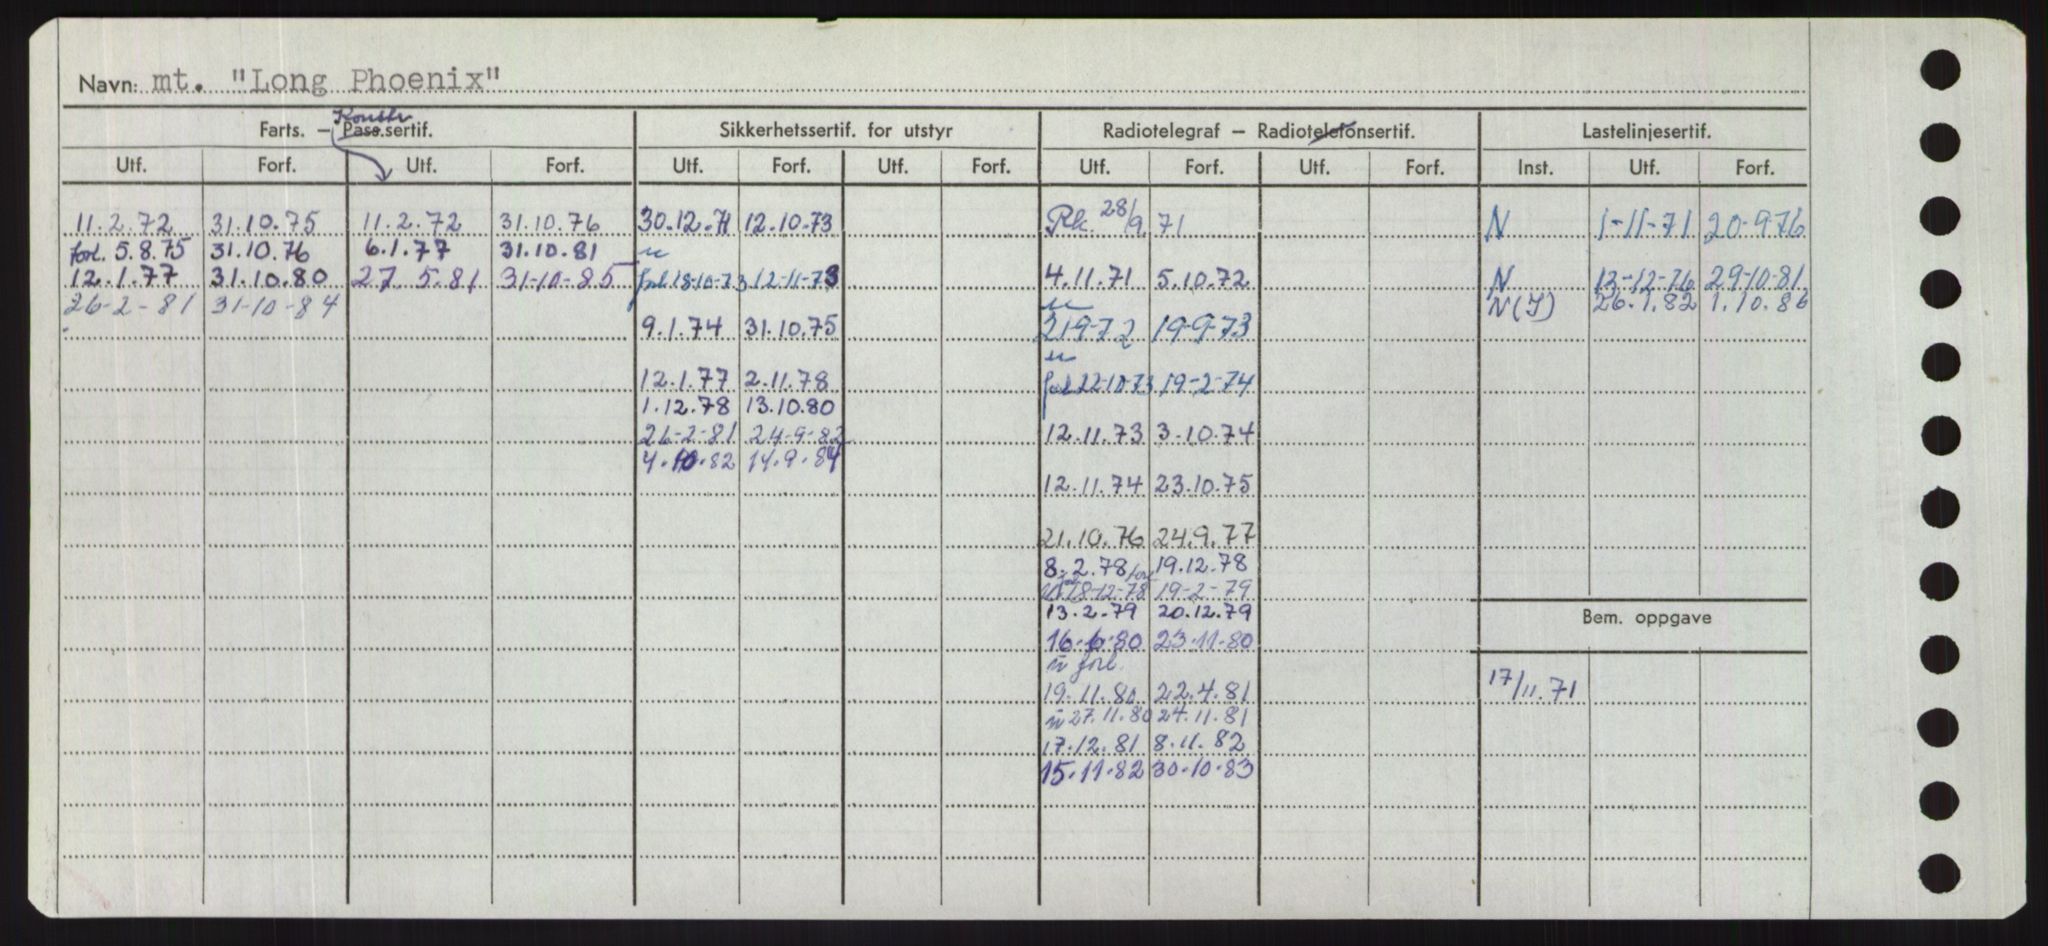 Navn: mt. "Long Phoenix"
Konstr
Farts. – Pass.sertif. Sikkerhetssertif. for utstyr Radiotelegraf – Radiotelefonsertif. Lastelinjesertif.
Utf. Forf. Utf. Forf. Utf. Forf. Utf. Forf. Utf. Forf. Utf. Forf. Inst. Utf. Forf.
11.2.72 31.10.75 11.2.72 31.10.76 30.12.71 12.10.73 Rk. 28/9 71 N 1-11-71 20-9-76
forl. 5.8.75 31.10.76 6.1.77 31.10.81 u
12.1.77 31.10.80 27.5.81 31-10-85 forl 18-10-73 12-11-73 4.11.71 5.10.72 N 13-12-76 29-10-81
26-2-81 31-10-84 u N(I) 26.1.82 1.10.86
9.1.74 31.10.75 21-9-72 19-9-73
u
12.1.77 2.11.78 forl 22-10-73 19-2-74
1.12.78 13.10.80
26-2-81 24-9-82 12.11.73 3.10.74
4.10.82 14.9.84
12.11.74 23.10.75
21.10.76 24.9.77
8.2.78 19.12.78
18-12-78 19-2-79
13.2.79 20.12.79
Bem. oppgave
16.6.80 23.11.80
u forl.
19.11.80 22.4.81 17/11.71
u 27.11.80 24.11.81
17.12.81 8.11.82
15.11.82 30.10.83